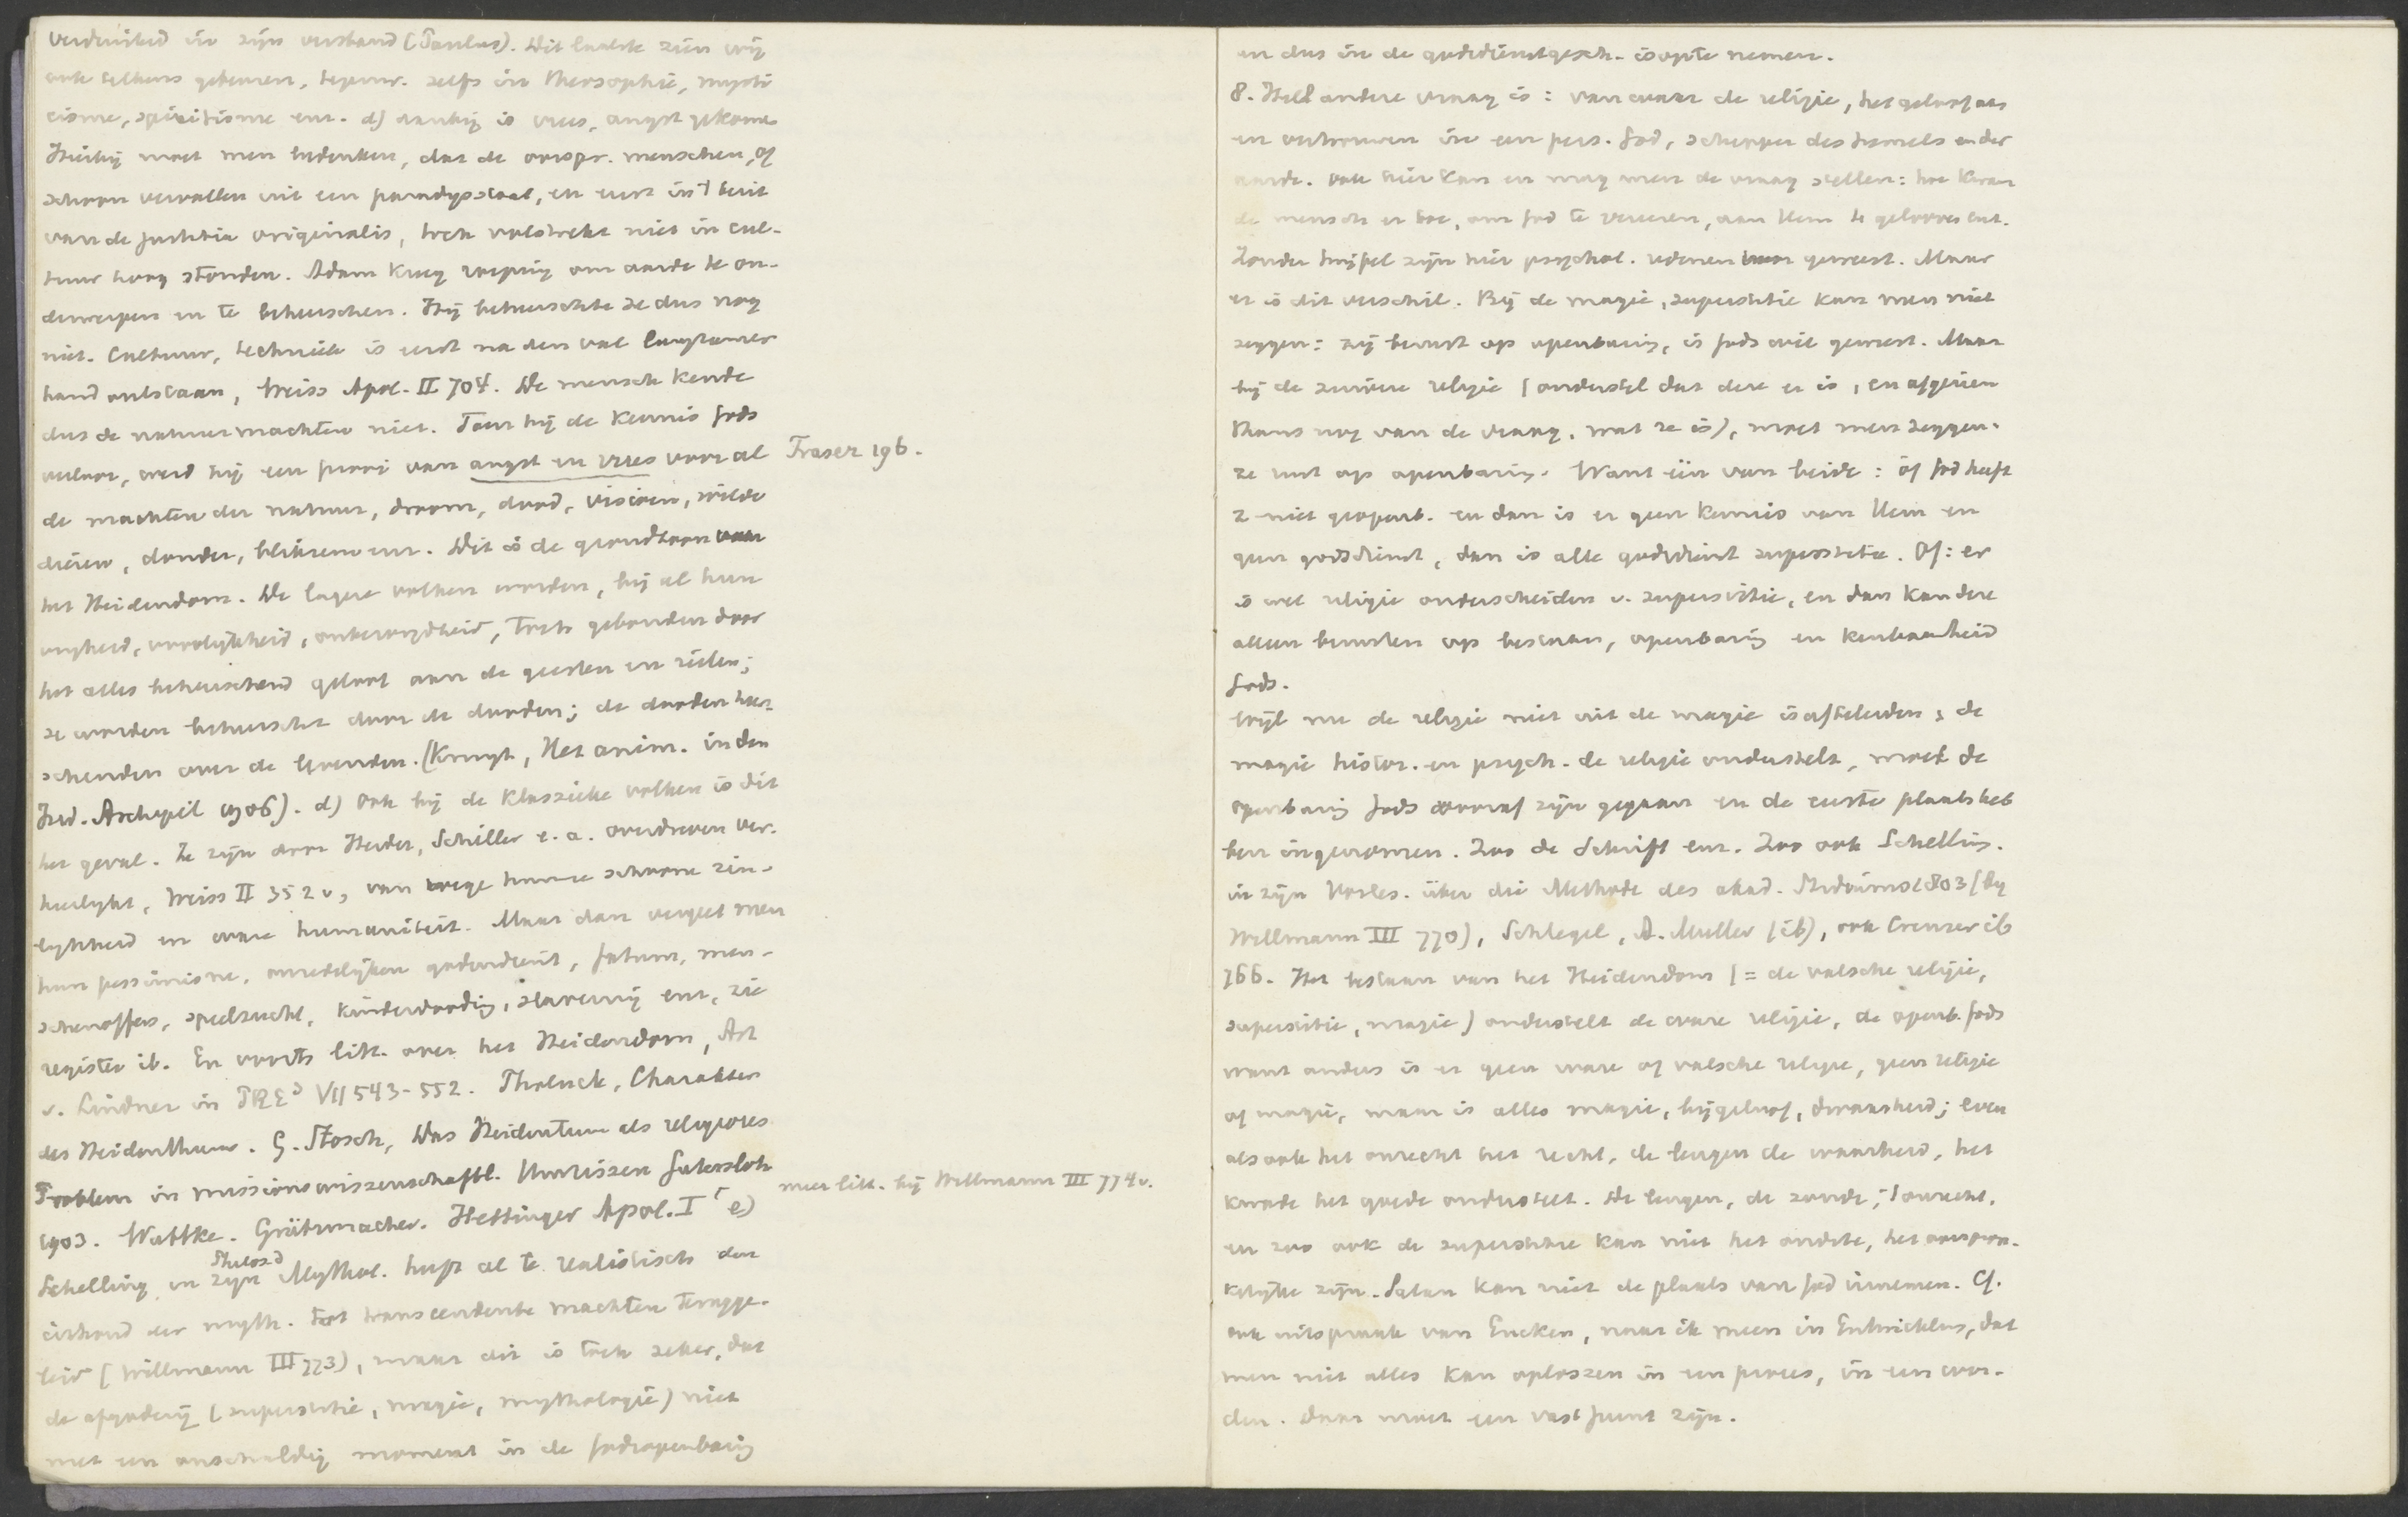 verduisterd in zijn verstand (Paulus). Dit laatste zien wij
ook telkens gebeuren, tegenw. zelfs in theosophie, mysti
cisme, spiritisme enz. d) daarbij is vrees, angst gekomen
Hierbij moet men bedenken, dat de oorspr. menschen, of
schoon vervallen uit een paradysstaat, en eerst in 't bezit
van de justitia originalis, toch volstrekt niet in cul-
tuur hoog stonden. Adam kreeg roeping om aarde te on-
derwerpen en te beheerschen. Hij beheerschte ze dus nog
niet. Cultuur, techniek is eerst na den val langzamer
hand ontstaan, Weiss Apol. II 704. De mensch kende
dus de natuurmachten niet. Toen hij de kennis Gods
verloor, werd hij een prooi van angst en vrees voor al
Fraser 196.
de machten der natuur, droom, dood, visioen, wilde
dieren, donder, bliksem enz. Dit is de grondtoon van
het Heidendom. De lagere volken worden, bij al hun
vrijheid, vroolijkheid, onbezorgdheid, toch gebonden door
het alles beheerschend geloof aan de geesten en zielen;
ze worden beheerscht door de dooden; de dooden heer-
schenden over de levenden. (Kruyt, Het anim. in den
Ind. Archipel 1906). d) Ook bij de klassieke volken is dit
het geval. Ze zijn door Herder, Schiller e. a. overdreven ver-
heerlijkt, Weiss II 352 v, van wege hunne schoone zin-
lijkheid en ware humaniteit. Maar dan vergeet men
hun pessimisme, onredelijken godendienst, fatum, men-
schenoffers, speelzucht, kinderdooding, slavernij enz, zie
register ib. En voorts litt. over het Heidendom, Art
v. Lindner in PRE³ VII 543-552. Tholuck, Charakter
des Heidenthums. G. Stosch, Das Heidentum als religiöses
Problem in missionswissenschaftl. Umrissen Gütersloh
meer litt. bij Willmann III 774 v.
1903. Wuttke. Grützmacher. Hettinger Apol. I e)
Schelling in zijn Philos. d Mythol. heeft al te realistisch den
inhoud der myth. tot transcendente machten terugge-
leid (Willmann III 773), maar dit is toch zeker, dat
de afgoderij (superstitie, magie, mythologie) niet
met een onschuldig moment in de Godsopenbaring
en dus in de godsdienstgesch. is op te nemen.
8. Heel andere vraag is: van waar de religie, het geloof aan
en vertrouwen in een pers. God, schepper des hemels en der
aarde. Ook hier kan en mag men de vraag stellen: hoe kwam
de mensch er toe, om God te vereeren, aan Hem te gelooven enz.
Zonder twijfel zijn hier psychol. redenen voor geweest. Maar
er is dit verschil. Bij de magie, superstitie kan men niet
zeggen: zij berust op openbaring, is Gods wil geweest. Maar
bij de zuivere religie (ondersteld dat deze er is, en afgezien
thans nog van de vraag, wat ze is), moet men zeggen:
ze rust op openbaring. Want één van beide: òf God heeft
z. niet geopenb. en dan is er geen kennis van Hem en
geen godsdienst, dan is alle godsdienst superstitie. Of: er
is wel religie onderscheiden v. superstitie, en dan kan deze
alleen berusten op bestaan, openbaring en kenbaarheid
Gods.
Wijl nu de religie niet uit de magie is af te leiden, de
magie histor. en psych. de religie onderstelt, moet de
openbaring Gods vooraf zijn gegaan en de eerste plaats heb
ben ingenomen. Zoo de Schrift enz. Zoo ook Schelling.
in zijn Vorles. über die Methode des akad. Studiums 1803 (bij
Willmann III 770), Schlegel, A. Muller (ib), ook Creuzer ib
766. Het bestaan van het Heidendom (= de valsche religie,
superstitie, magie) onderstelt de ware religie, de openb. Gods
want anders is er geen ware of valsche religie, geen religie
of magie, maar is alles magie, bijgeloof, dwaasheid; even
als ook het onrecht het recht, de leugen de waarheid, het
kwade het goede onderstelt. De leugen, de zonde, 't onrecht,
en zoo ook de superstitie kan niet het eerste, het oorspron-
kelijke zijn. Satan kan niet de plaats van God innemen. Cf.
ook uitspraak van Eucken, naar ik meen in Entwicklung, dat
men niet alles kan oplossen in een proces, in een wor-
den. Daar moet een vast punt zijn.